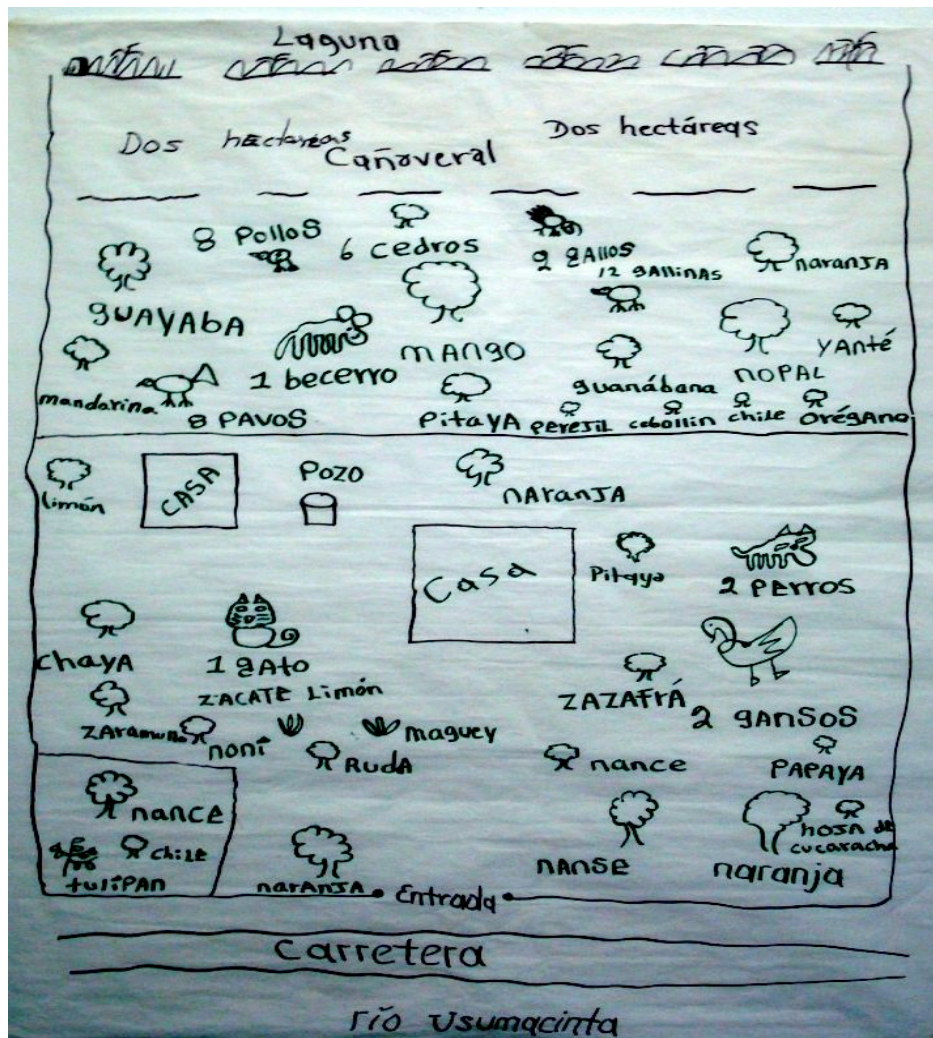 Laguna
Dos hectareas
Dos hectáreas
Cañaveral
8 Pollos
6 cedros
2 gallos
12 gallinas
naranja
guayaba
mango
yanté
1 becerro
guanábana
nopal
mandarina
8 pavos
Pitaya
perejil
cebollin
chile
orégano
limón
casa
Pozo
naranja
Casa
Pitaya
2 perros
chaya
1 gato
zacate limón
zazafrá
2 gansos
zaramullo
noni
maguey
Ruda
nance
papaya
nance
chile
tulipan
naranja
nanse
naranja
hoja de
cucaracha
Entrada
Carretera
río Usumacinta